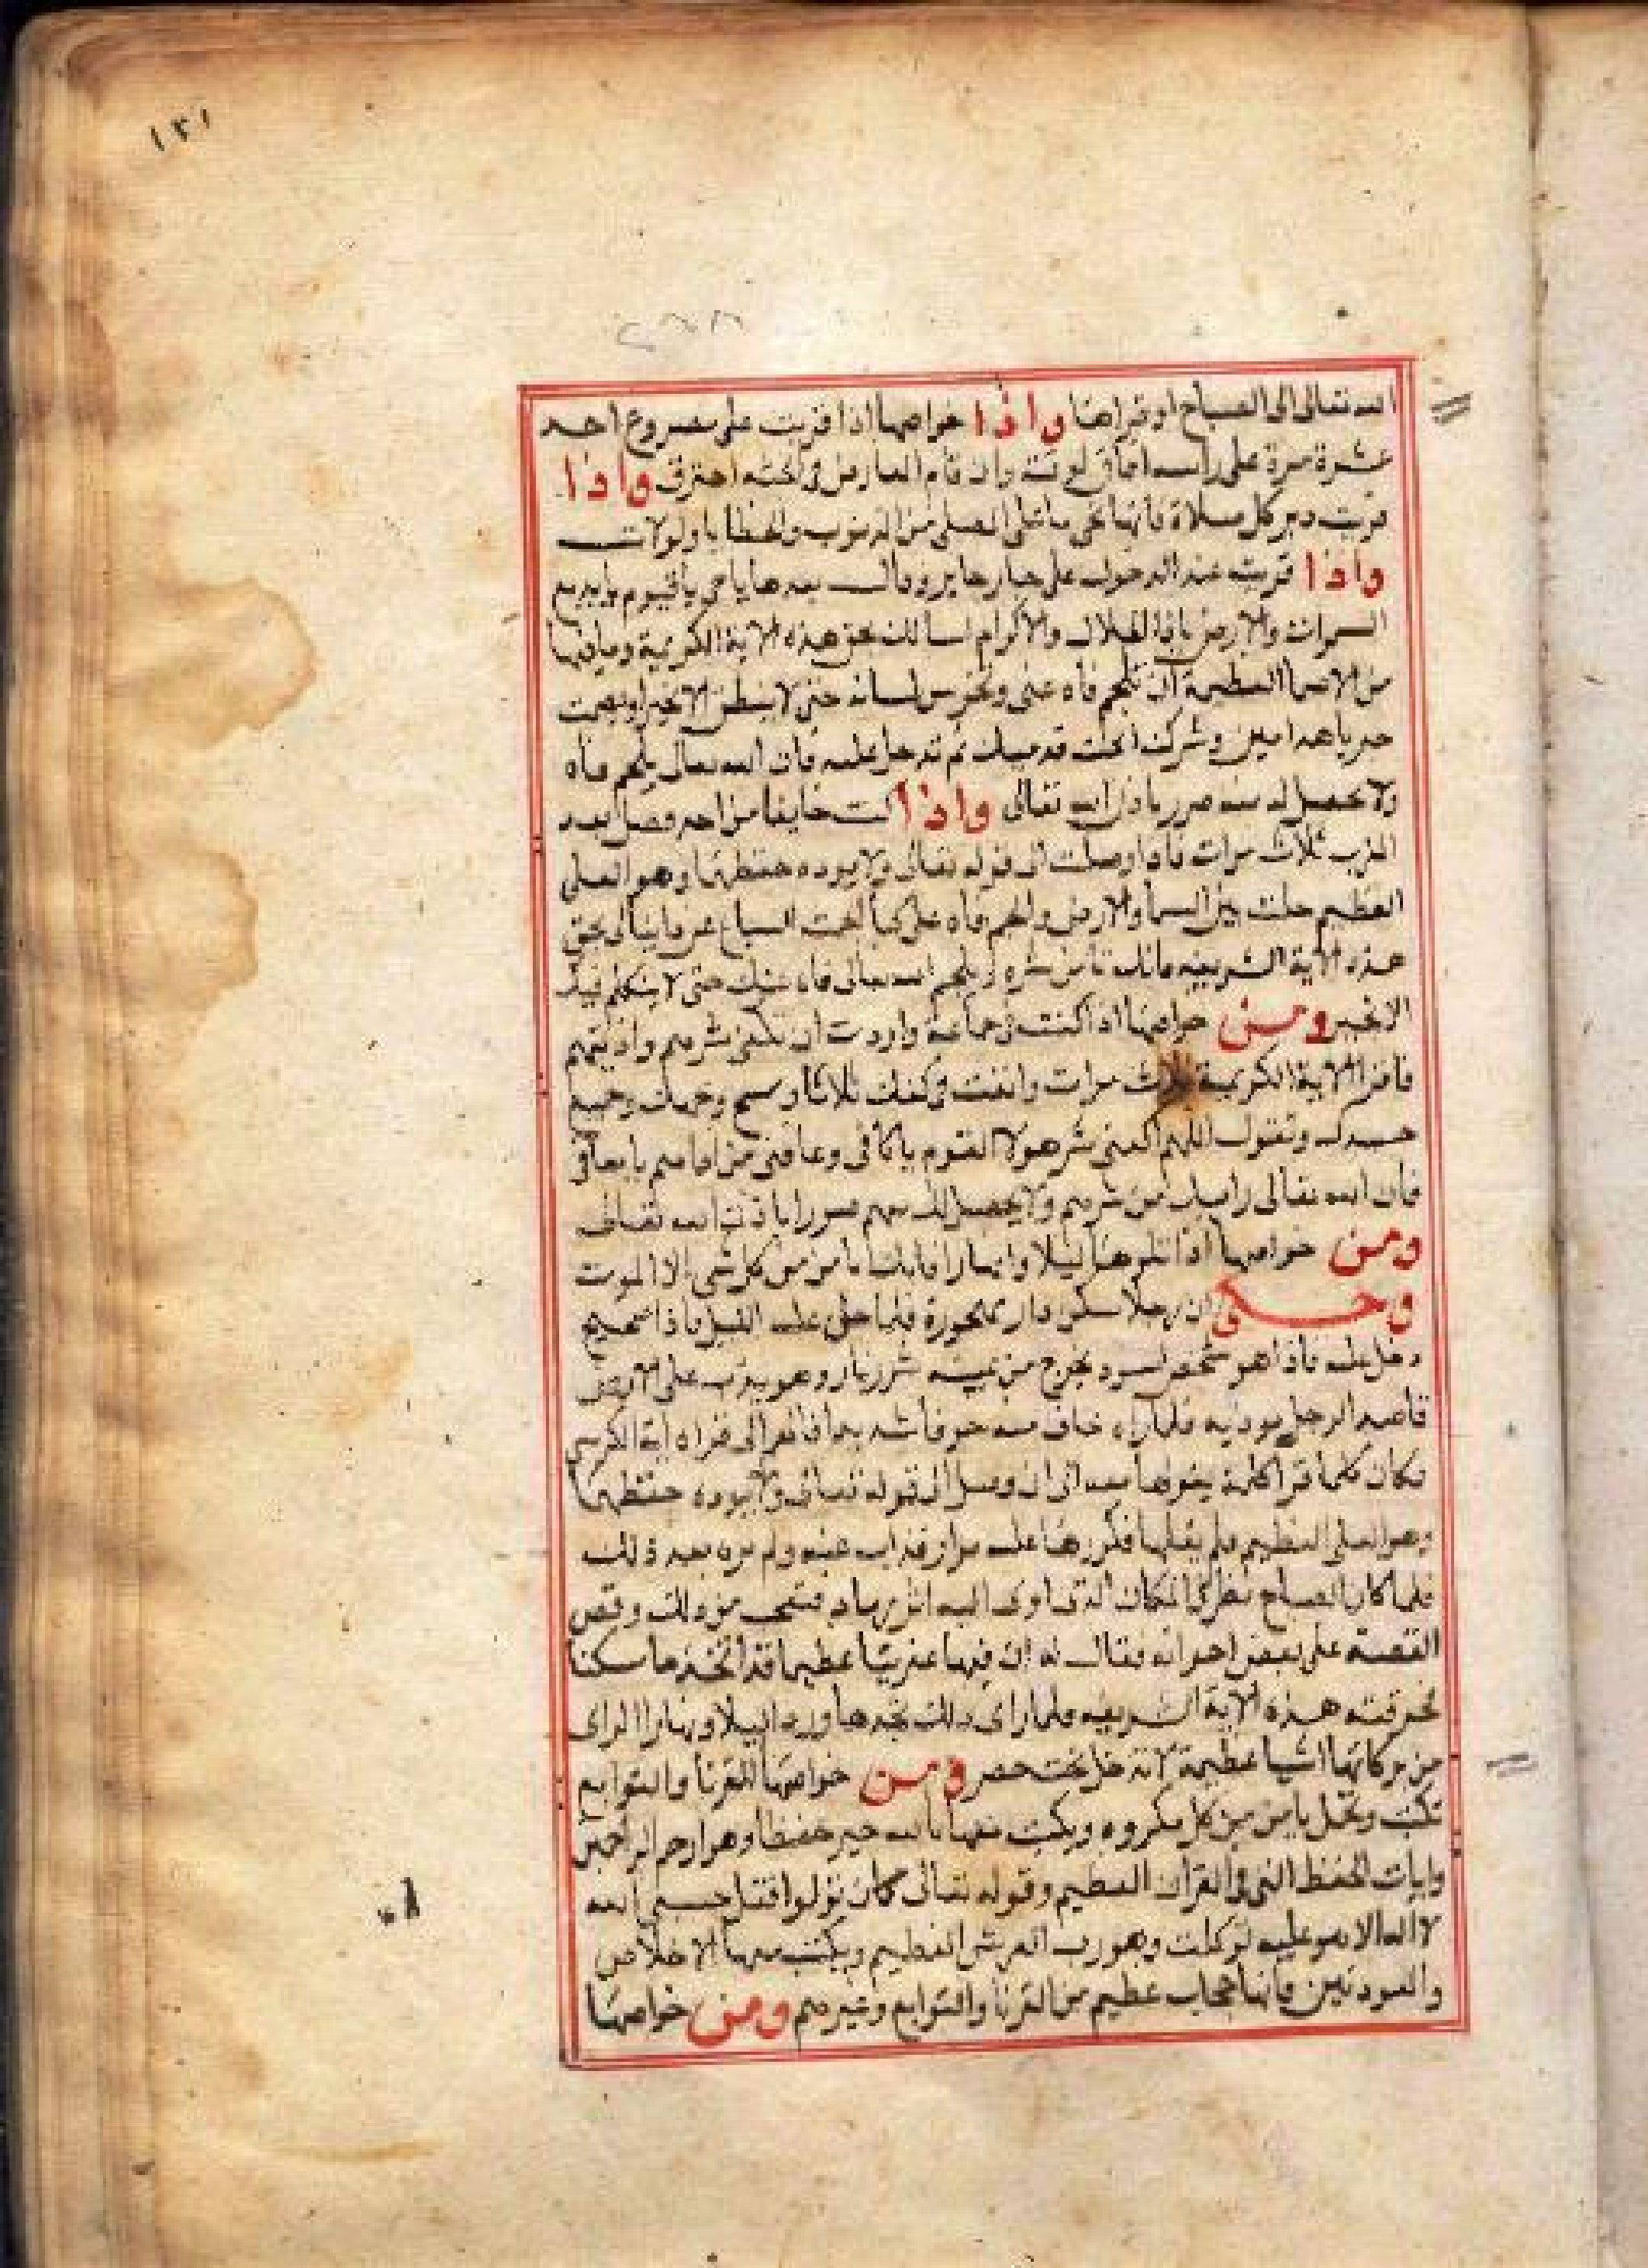 ١٣١
الله تعالى الى الصباح او قراها واذا خواصها اذا قريت على مصروع احد
عشرة مرة على راسه افاق لوقته وان قام العارض في جثته احترق واذا
قريت دبر كل صلاة فانها تمحي ما على المصلي من الذنوب والخطايا ولو لا
واذا قريته عند الدخول على جبار جاير وقال بعدها يا حي يا قيوم يا بديع
السموات والارض يا ذا الجلال والاكرام اسالك بحق هذه الاية الكريمة وما فيها
من الاسما العظيمة ان تلجم فاه عني وتخرس لسانه حتى لا ينطق الا بخير او يصمت
خيريا هذا بين وشرك تحت قدميك ثم تدخل عليه فان الله تعالى يلجم فاه
ولا يحصل له منه ضرر باذن الله تعالى واذا كنت خايفا من احد فصل بعد
المغرب ثلاث مرات فاذا وصلت الى قوله تعالى ولا يوده حفظهما وهو العلي
العظيم حلت بين السما والارض والجم فاه عني كما الجمت السباع عن دانيال بحق
هذه الاية الشريفة فانك تامن شره ويلجم الله تعالى فاه عنك حتى لا يتكلم فيك
الا بخير ومن خواصها اذا كنت في جماعة واردت ان تكفى شرهم واذيتهم
فاقرا الاية الكريمة ثلاث مرات واتفت في كفك ثلاثا وامسح وجهك وجميع
جسدك وتقول اللهم اكفني شر هولا القوم يا كافي وعافني من اذاهم يا معافي
فان الله تعالى من شرهم ولا يحصل لك منهم ضررا باذن الله تعالى
ومن خواصها اذا تلوهتا ليلا ونهارا فانك تامن من كل شي الا الموت
وحكي ان رجلا سكن دار مهجورة فلما جن عليه الليل فاذا
دخل عليه فاذا هو شخص اسود يخرج من عينيه شرر نار وهو يقرب على
قاصد الرجل يوذيه فلما راه خاف منه خوفا شديدا فانقر الى قراه اية الكرسي
فكان كلما قرا كلمة يقولها معه الى ان وصل الى قوله تعالى ولا يوده حفظهما
وهو العلي العظيم فلم يقلها فكررها عليه مرار فذاب عنه ولم يره بعد ذلك
فلما كان الصباح نظر في المكان الذي اوى اليه اثر رماد فتعجب من ذلك وقص
القصة على بعض اخوانه فقال له ان فيها عفريتا عظيما قد اتخذها سكنا
فحرقته هذه الاية الشريفة فلما راى ذلك اتخذها وردا ليلا ونهارا الراى
من بركاتها اشيا عظيمة لا تدخل تحت حصر ومن خواصها للقرنا والتوابع
تكتب وتحمل يا من من كل مكروه ويكتب معها فالله خير حفظا وهو ارحم الراحمين
وايات الحفظ التي في القران العظيم وقوله تعالى فان تولوا فقل حسبي الله
لا اله الا هو عليه توكلت وهو رب العرش العظيم ويكتب معها الاخلاص
والمعوذتين فانها حجاب عظيم من القرنا والتوابع وغيرهم ومن خواصها